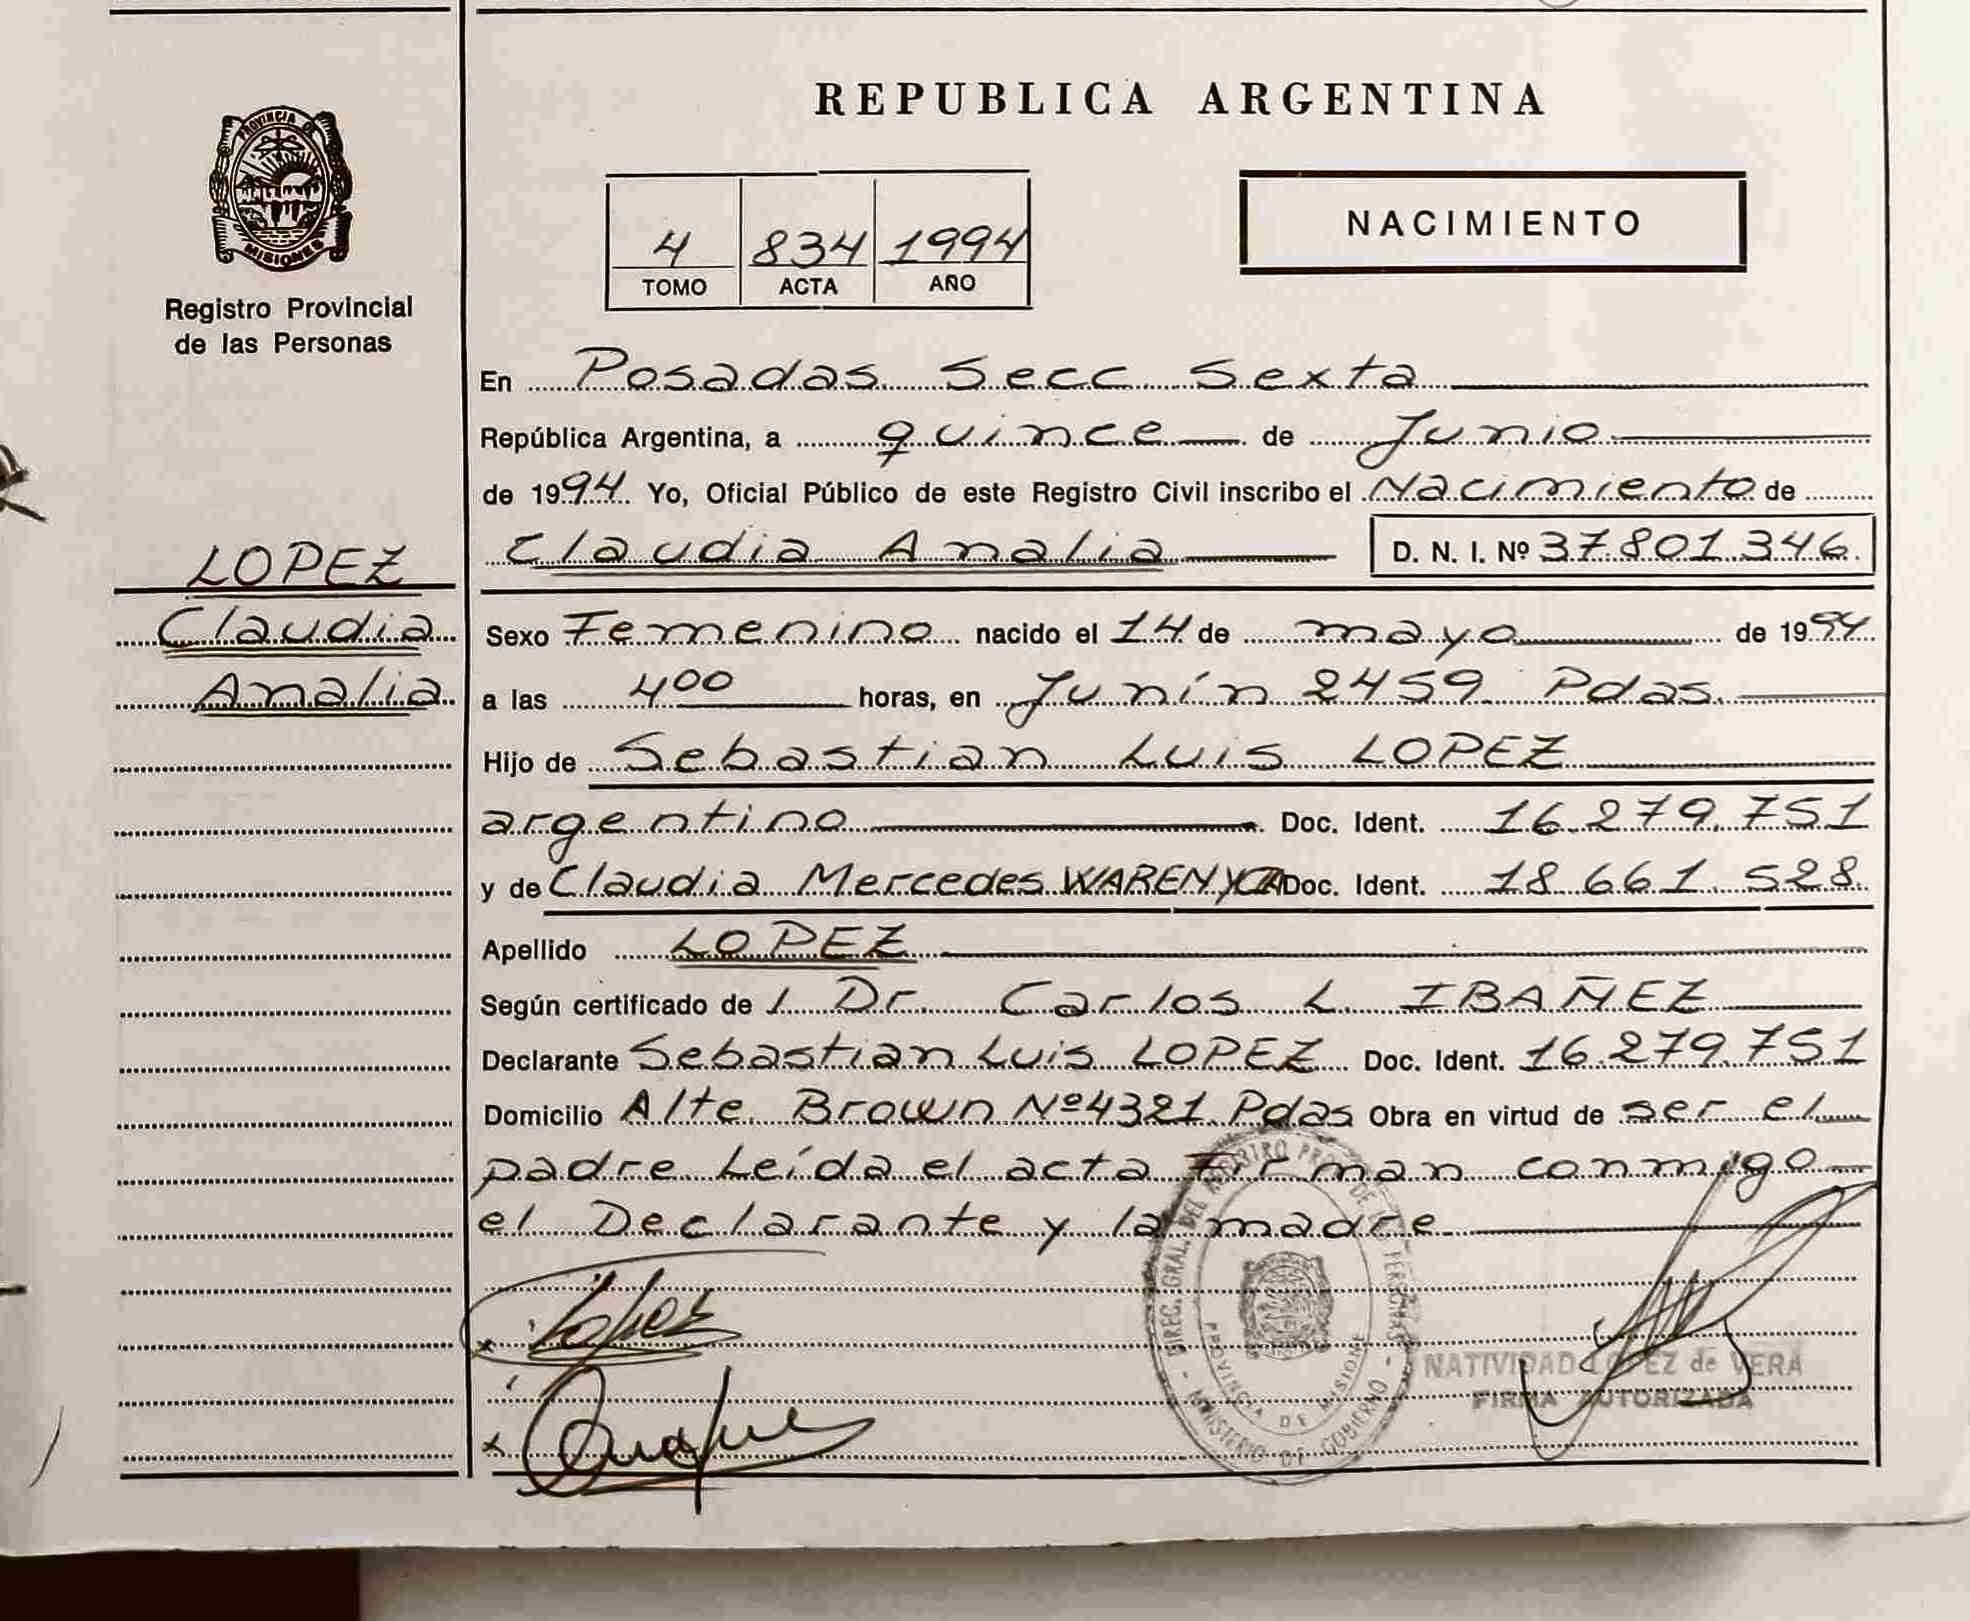 REPUBLICA ARGENTINA
PROVINCIA DE
MISIONES
Registro Provincial
de las Personas
4 834 1994
TOMO ACTA AÑO
NACIMIENTO
En Posadas Secc Sexta
República Argentina, a quince de Junio
de 1994 Yo, Oficial Público de este Registro Civil inscribo el Nacimiento de
Claudia Analia D. N. I. Nº 37.801.346.
LOPEZ
Claudia
Analia
Sexo Femenino nacido el 14 de mayo de 1994
a las 4 00 horas, en Junín 2459 Pdas.
Hijo de Sebastian Luis LOPEZ
argentino Doc. Ident. 16.279.751
y de Claudia Mercedes Doc. Ident. 18.661.528
Apellido LOPEZ
Según certificado de l Dr. Carlos L. IBAÑEZ
Declarante Sebastian Luis LOPEZ Doc. Ident. 16.279.751
Domicilio Alte. Brown Nº 4321 Pdas Obra en virtud de ser el
padre Leída el acta Firman conmigo
el Declarante y la madre
Lopez
DIREC. GRAL. DEL REGISTRO PROV. DE LAS PERSONAS
PROVINCIA DE MISIONES
MINISTERIO DE GOBIERNO
NATIVIDAD LOPEZ de VERA
FIRMA AUTORIZADA